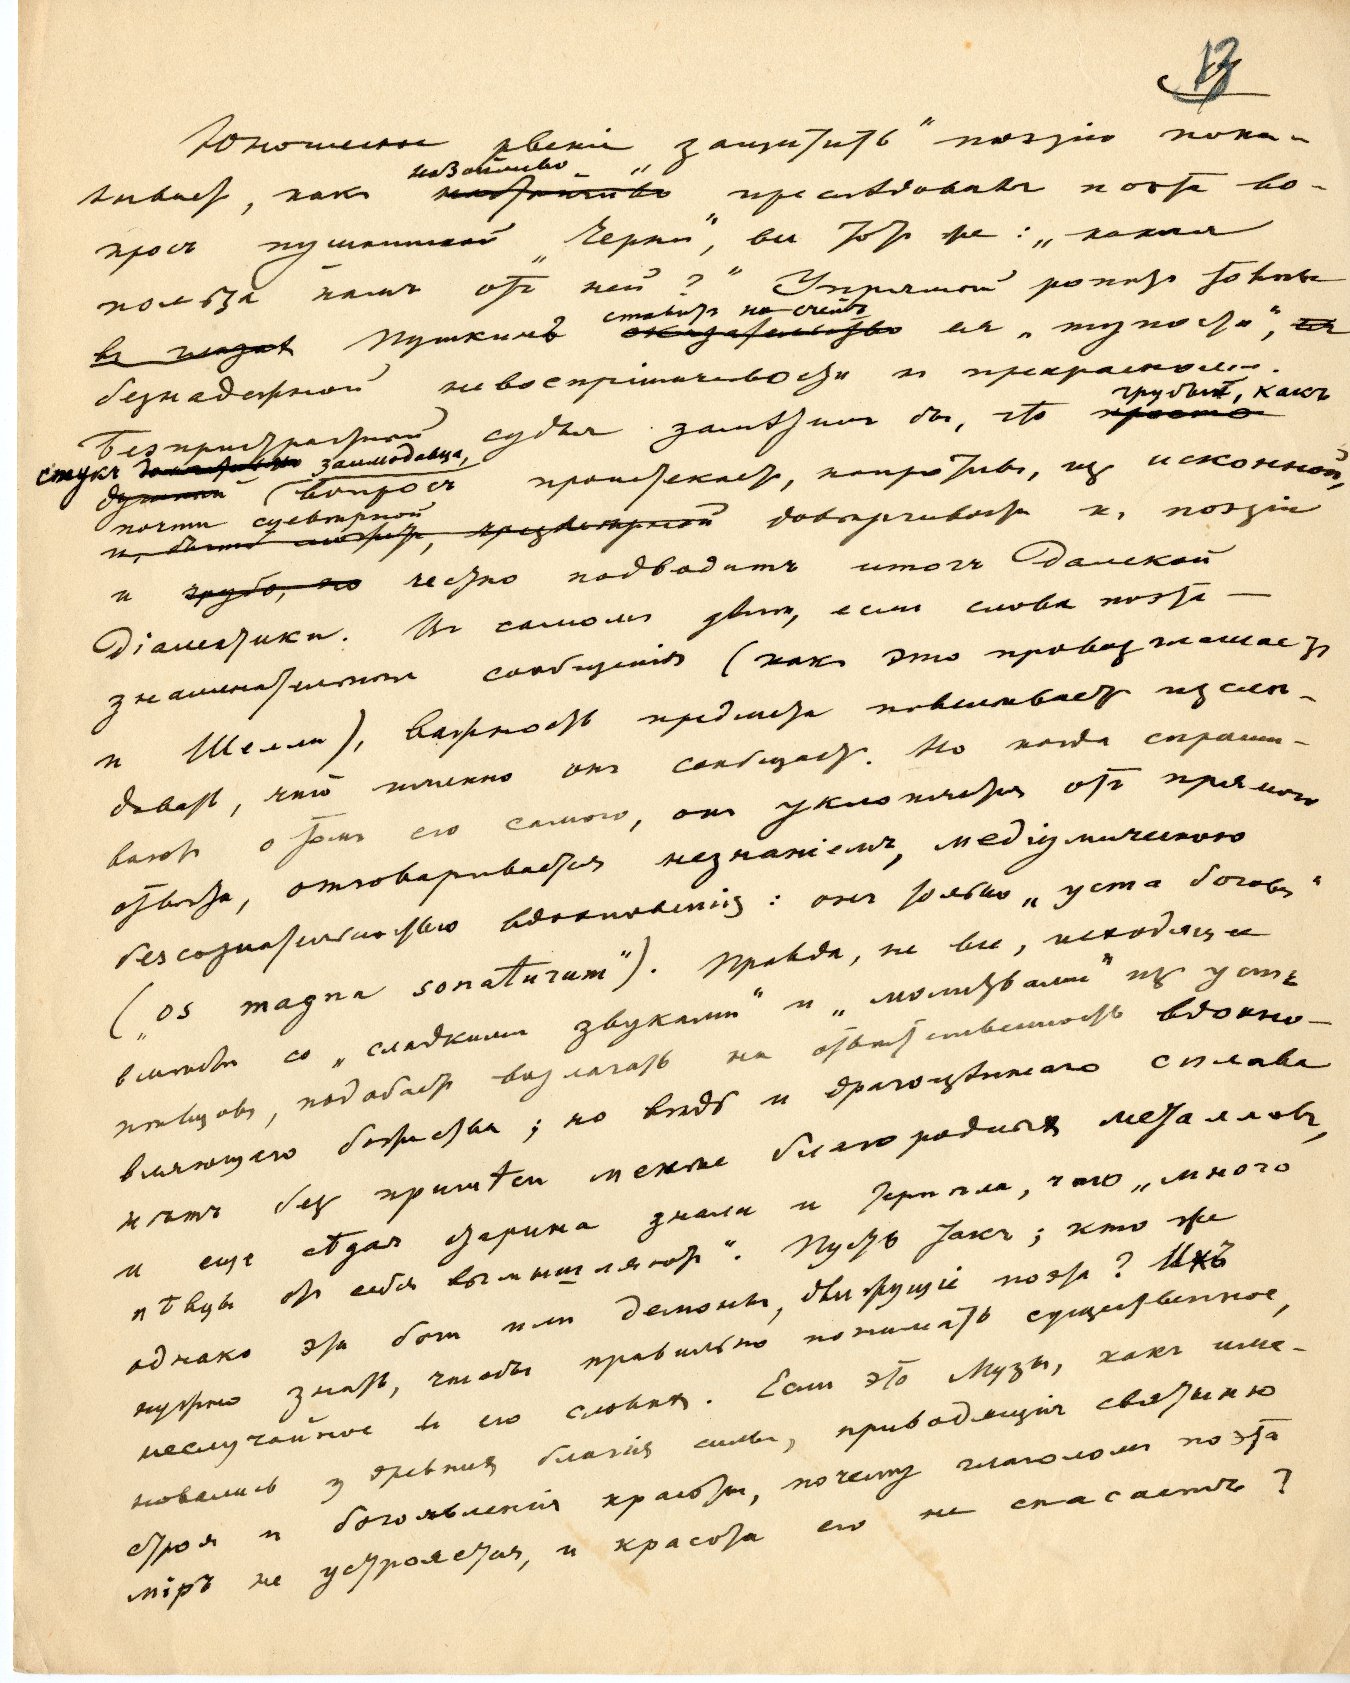 13
Юношеское рвенiе „защитить“ поэзiю пока-
зываетъ, какъ навязчиво преслѣдовалъ поэта во-
просъ пушкинской „Черни“, все тотъ же: „какая
польза намъ отъ ней?“ Упрямый ропотъ толпы
въ глазахъ Пушкинъ ставитъ на счетъ ея „тупости“, ея
безнадежной невоспрiимчивости къ прекрасному.
Безпристрастный судья замѣтилъ бы, что просто грубый, какъ
стукъ заимодавца,
вопросъ проистекаетъ, напротивъ, изъ исконной,
почти суевѣрной
и, быть можетъ, чрезмѣрной довѣрчивости къ поэзiи
и грубо, но честно подводитъ итогъ Дамской
Дiалектики. Въ самомъ дѣлѣ, если слова поэта —
знаменательныя сообщенiя (какъ это провозглашаетъ
и Шелли), важность предмета повелѣваетъ изслѣ-
довать, что именно онъ сообщаетъ. Но когда спраши-
ваютъ о томъ его самого, онъ уклоняется отъ прямого
отвѣта, отговаривается незнанiемъ, медiумическою
безсознательностью вдохновенiя: онъ только „уста боговъ“
(„os magna sonaturum“). Правда, не все, исходящее
вмѣстѣ со „сладкими звуками“ и „молитвами“ изъ устъ
пѣвцовъ, подобаетъ возлагать на отвѣтственность вдохно-
вляющаго божества; но вѣдь и драгоцѣннаго сплава
нѣтъ безъ примѣси менѣе благородныхъ металловъ,
и еще сѣдая старина знала и терпѣла, что „много
пѣвцы отъ себя вымышляютъ“. Пусть такъ; кто же
однако эти боги или демоны, движущiе поэта? Ихъ
нужно знать, чтобы правильно понимать существенное,
неслучайное въ его словахъ. Если это Музы, какъ име-
новались у древнихъ благiя силы, приводящiя святыню
строя и богоявленiя красоты, почему глаголомъ поэта
мiръ не устрояется, и красота его не спасаетъ?